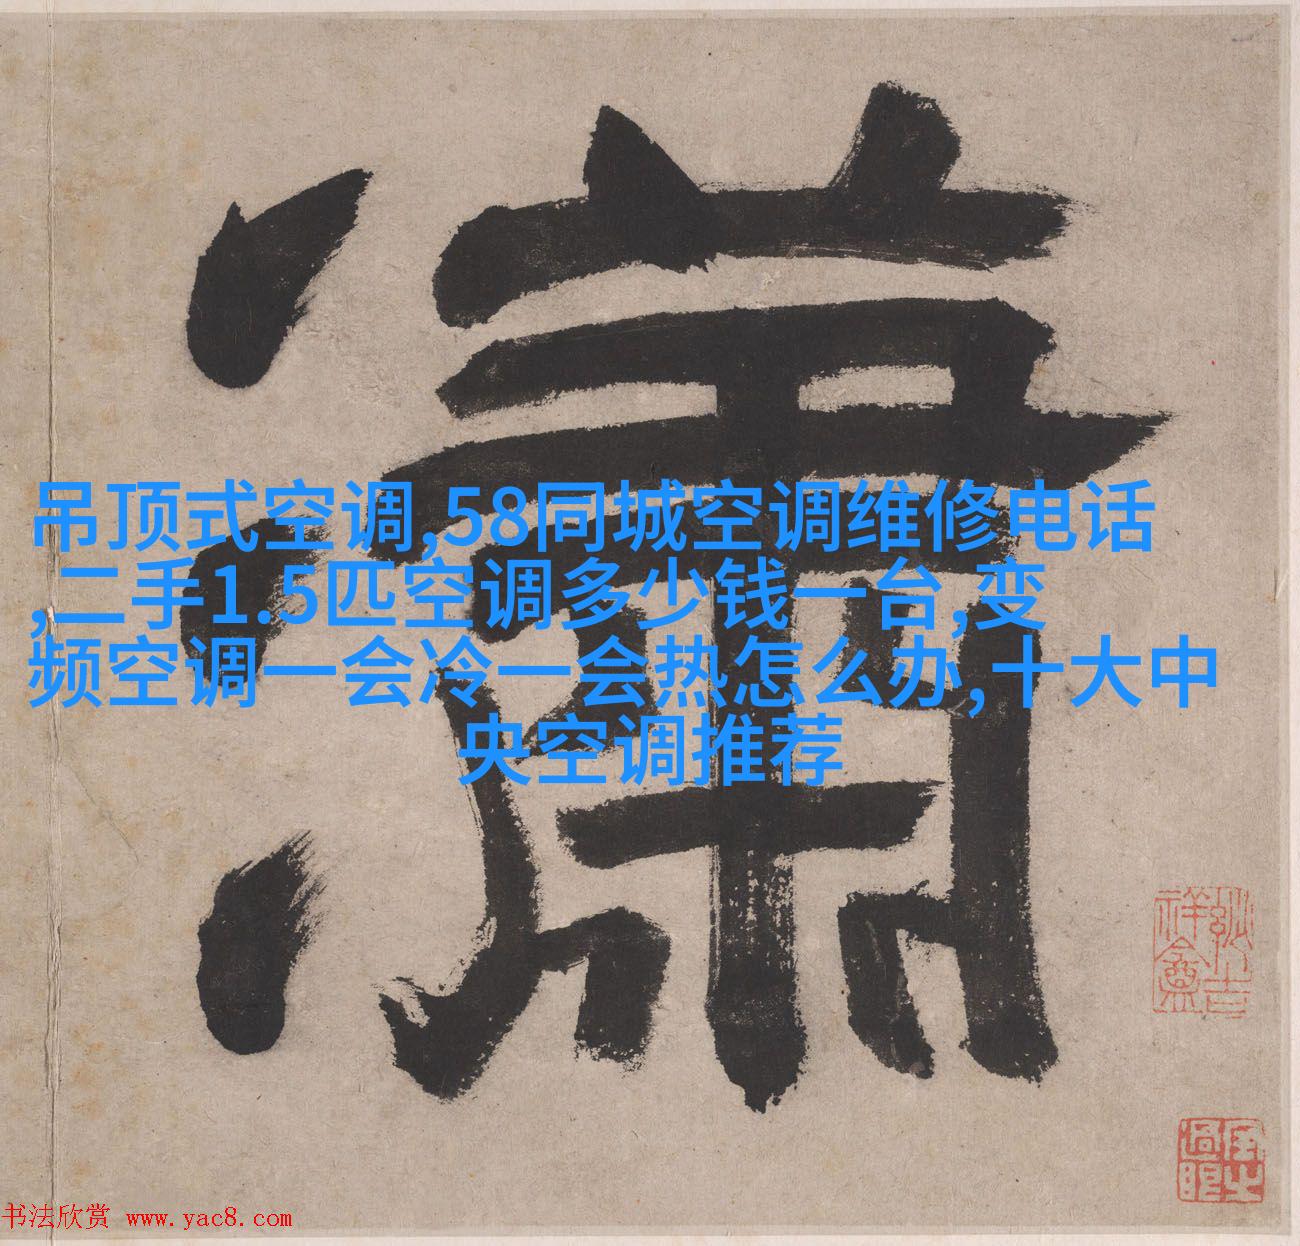 瀟
吊顶式空调,58同城空调维修电话
,二手1.5匹空调多少钱一台,变
频空调一会冷一会热怎么办,十大中
央空调推荐
书法欣赏 www.yac8.com